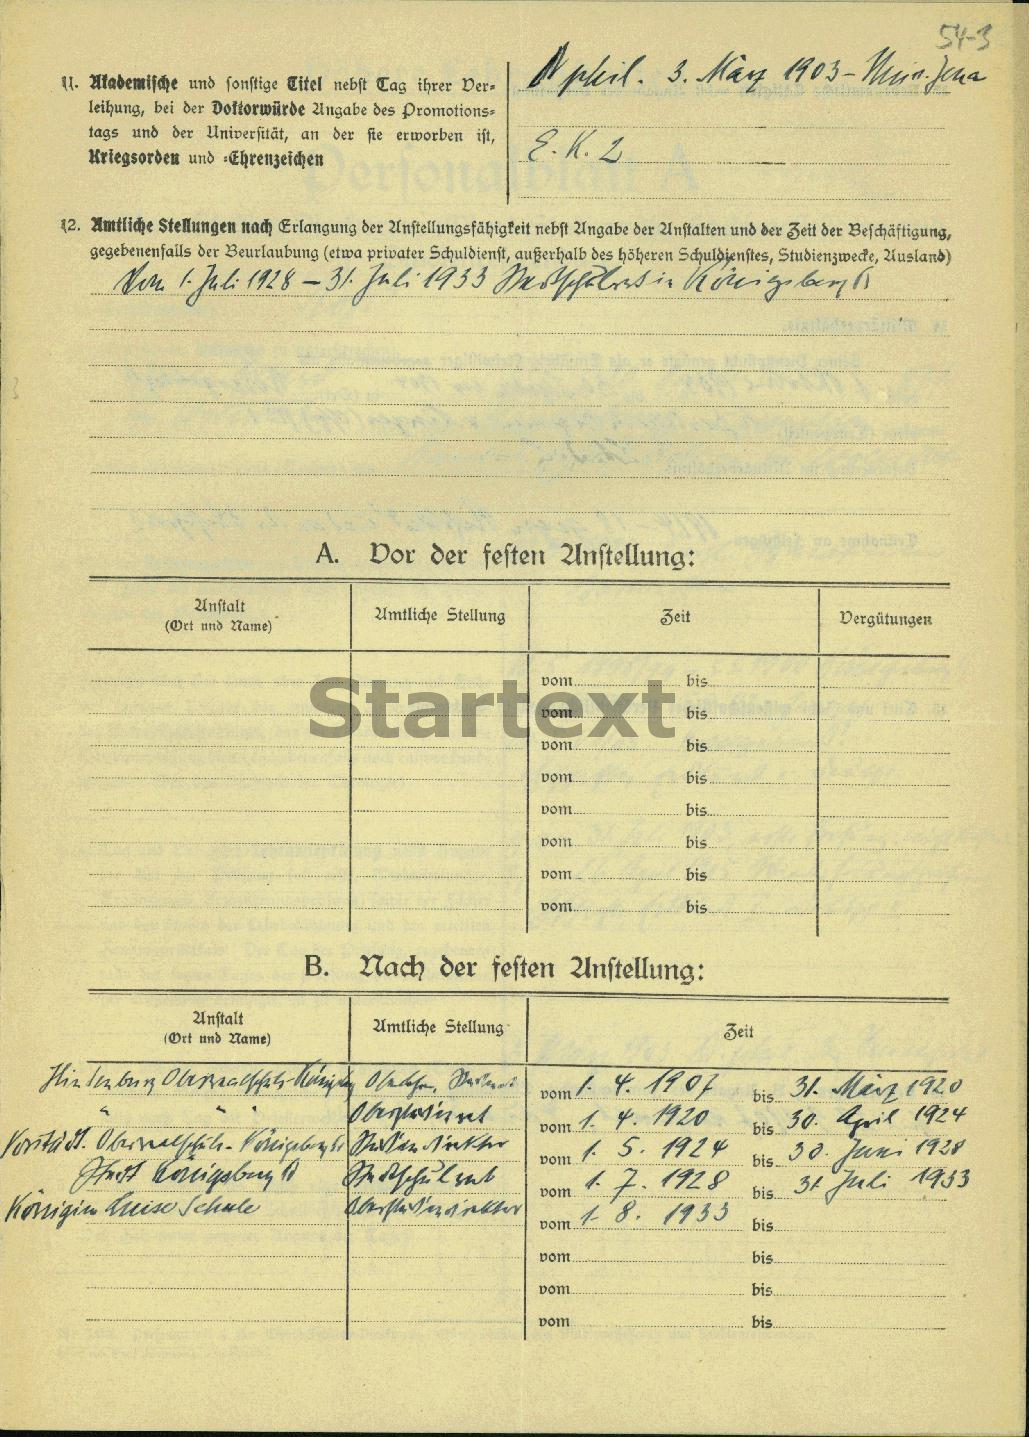 54-3
11. Akademische und sonstige Titel nebst Tag ihrer Ver=
leihung, bei der Doktorwürde Angabe des Promotions=
tags und der Universität, an der sie erworben ist,
Kriegsorden und =Ehrenzeichen
phil. 3. März 1903 – Univ. Jena
E. K. 2
12. Amtliche Stellungen nach Erlangung der Anstellungsfähigkeit nebst Angabe der Anstalten und der Zeit der Beschäftigung,
gegebenenfalls der Beurlaubung (etwa privater Schuldienst, außerhalb des höheren Schuldienstes, Studienzwecke, Ausland)
Vom 1. Juli 1928 – 31. Juli 1933 Stadtschulrat in Königsberg
A. Vor der festen Anstellung:
Anstalt
(Ort und Name)
Amtliche Stellung
Zeit
Vergütungen
vom bis
vom bis
vom bis
vom bis
vom bis
vom bis
vom bis
vom bis
Startext
B. Nach der festen Anstellung:
Anstalt
(Ort und Name)
Amtliche Stellung
Zeit
Hindenburg Oberrealschule Königsbg vom 1. 4. 1907 bis 31. März 1920
" " " Oberstudienrat vom 1. 4. 1920 bis 30. April 1924
Vorstädt. Oberrealschule - Königsberg Studiendirektor vom 1. 5. 1924 bis 30. Juni 1928
Stadt Königsberg Stadtschulrat vom 1. 7. 1928 bis 31. Juli 1933
Königin Luise Schule Oberstudiendirektor vom 1. 8. 1933 bis
vom bis
vom bis
vom bis